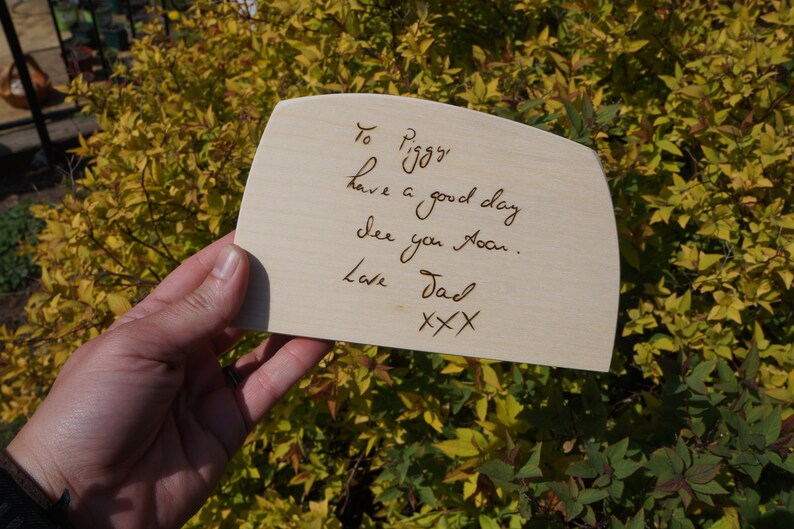 To Piggy,
have a good day
See you soon.
Love Dad
xxx